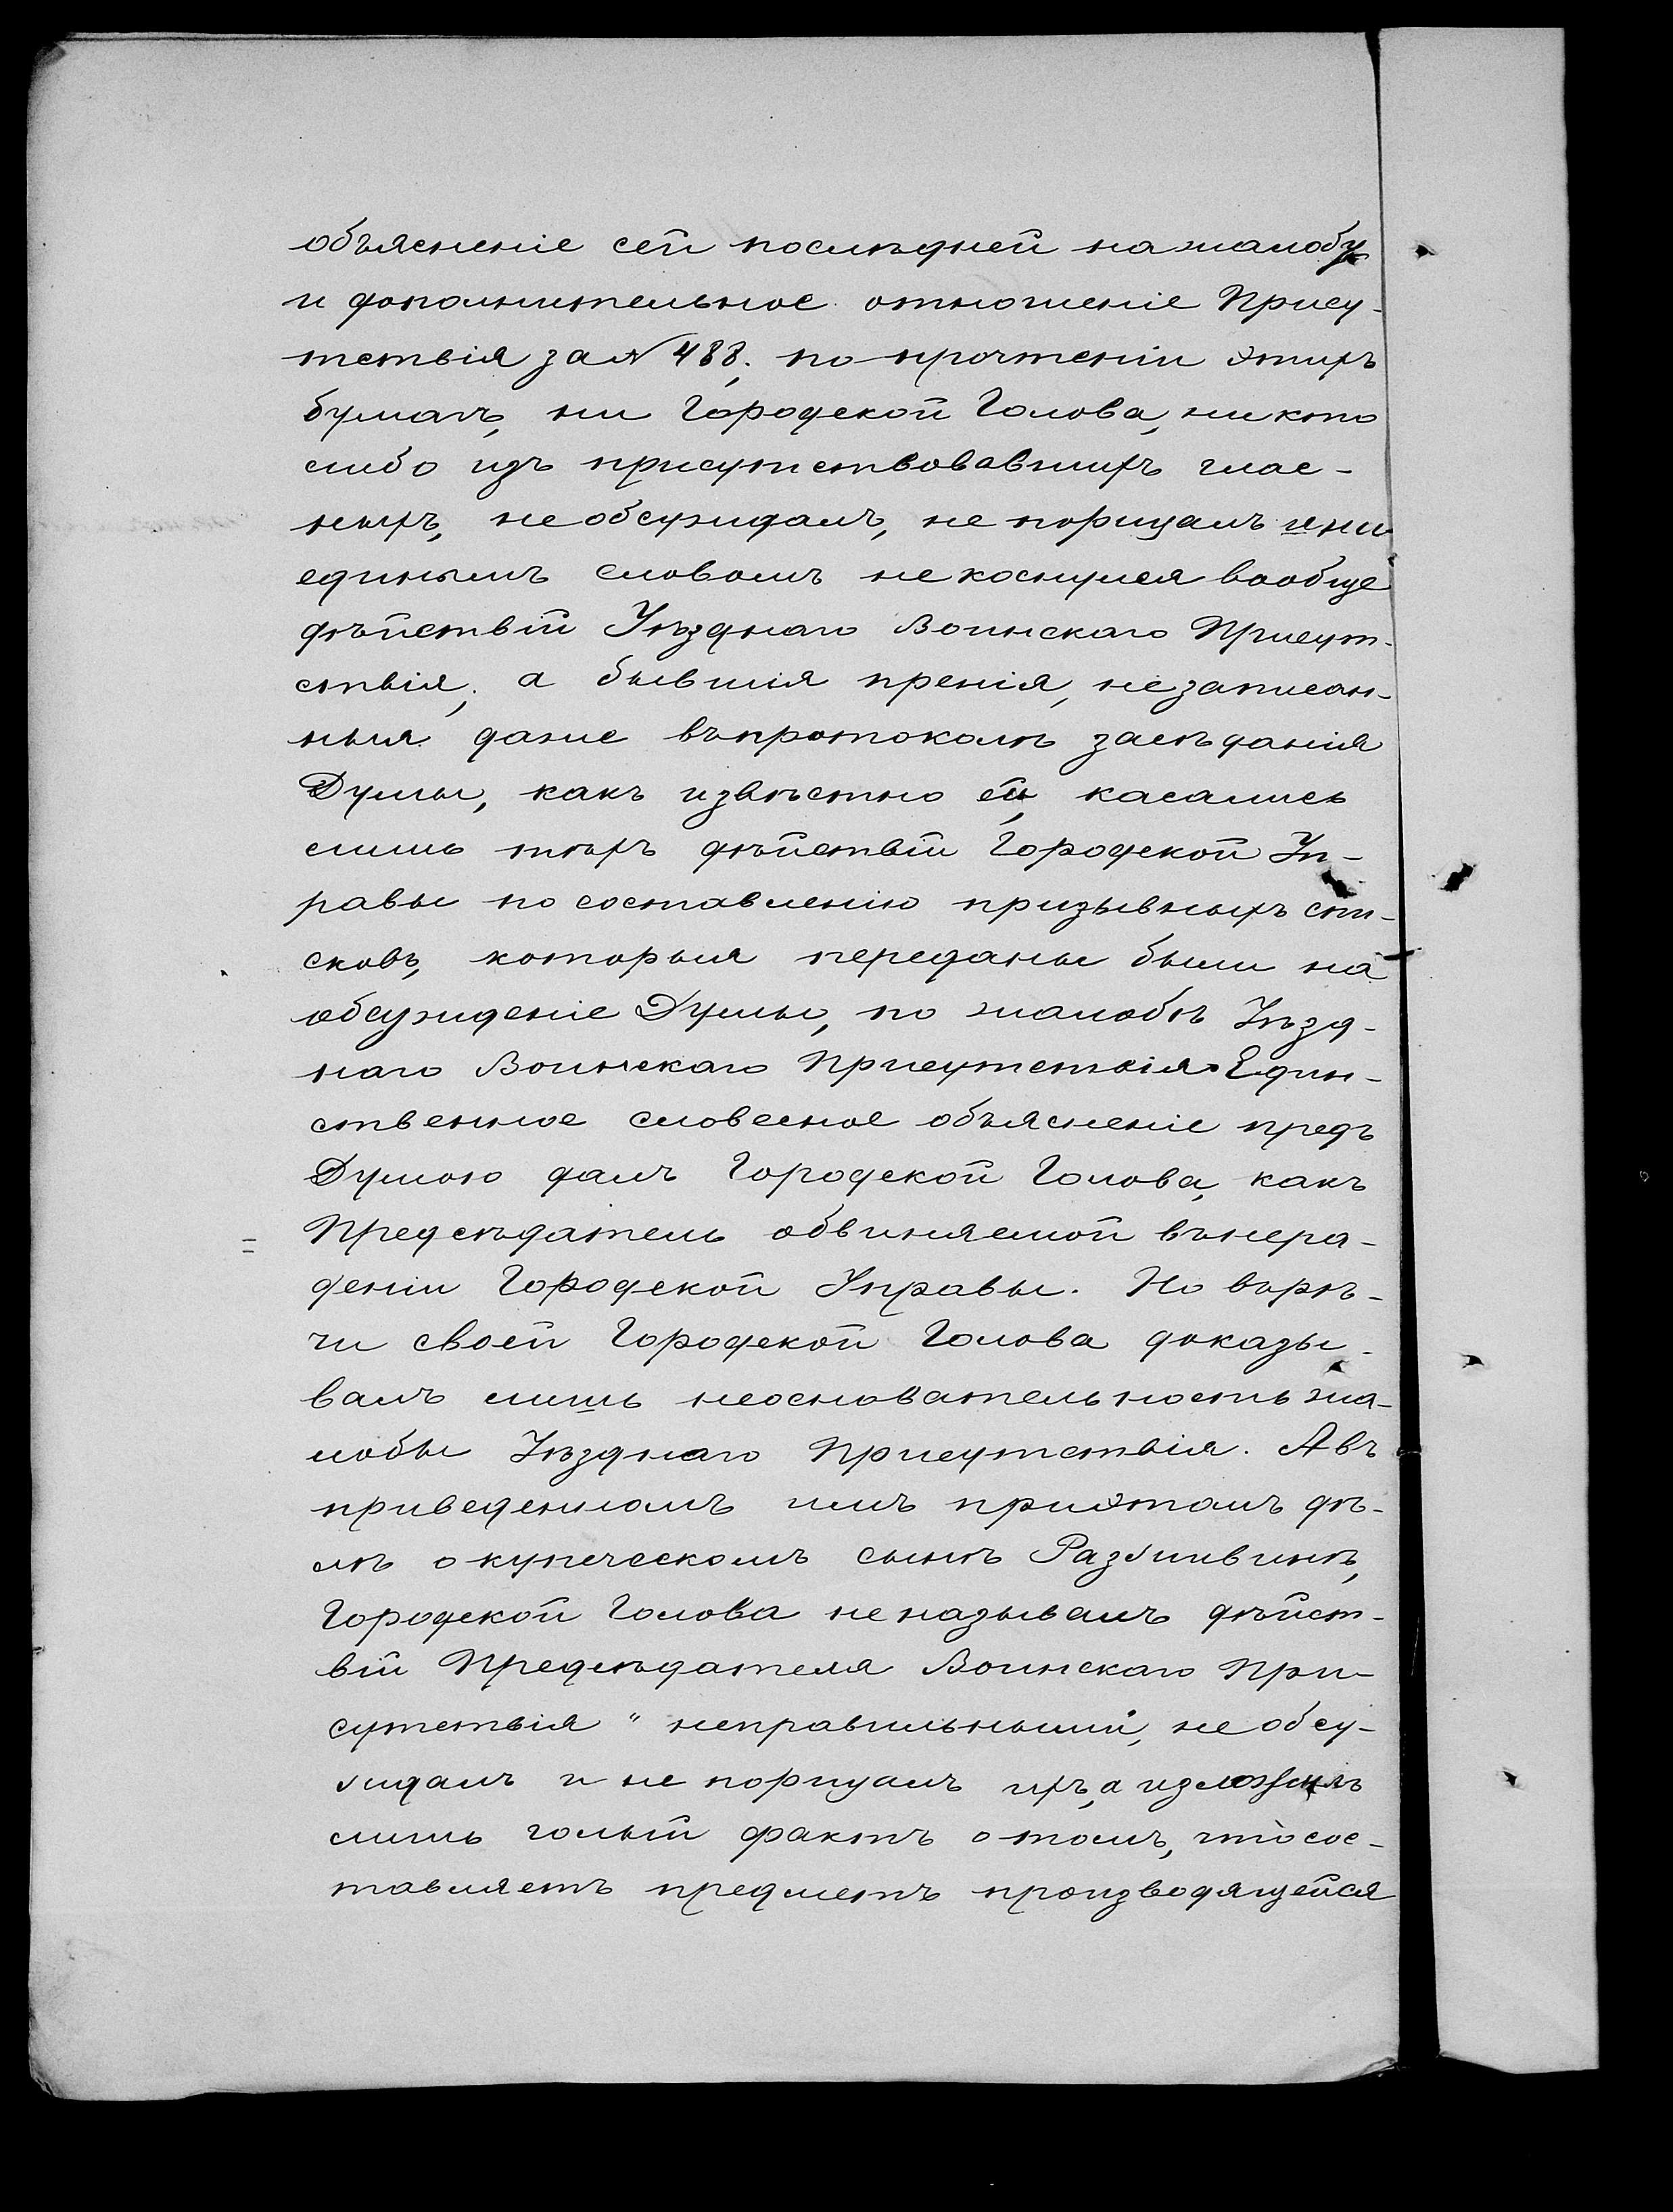 объясненіе сей послѣдней на жалобу
и дополнительное отношеніе Прису-
тствія за № 488. по прочтеніи этихъ
бумагъ, ни Городской Голова, ни кто
либо изъ присутствовавшихъ глас-
ныхъ, не обсуждалъ, не порицалъ и ни
единымъ словомъ не коснулся вообще
дѣйствій Уѣзднаго Воинскаго Присут-
ствія, а бывшія пренія, не записан-
ныя даже въ протоколѣ засѣданія
Думы, какъ извѣстно ей, касались
лишь тѣхъ дѣйствій Городской Уп-
равы по составленію призывныхъ спи-
сковъ, которыя переданы были на
обсужденіе Думы, по жалобѣ Уѣзд-
наго Воинскаго Присутствія. Един-
ственное словесное объясненіе предъ
Думою далъ Городской Голова, какъ
Предсѣдатель обвиняемой въ нера-
деніи Городской Управы. Но въ рѣ-
чи своей Городской Голова доказы-
валъ лишь неосновательность жа-
лобы Уѣзднаго Присутствія. А въ
приведенномъ имъ при этомъ дѣ-
лѣ о купеческомъ сынѣ Разживинѣ,
Городской Голова не называлъ дѣйст-
вій Предсѣдателя Воинскаго При-
сутствія "неправильными", не обсу-
ждалъ и не порицалъ ихъ, а изложилъ
лишь голый фактъ о томъ, что сос-
тавляетъ предметъ производящейся